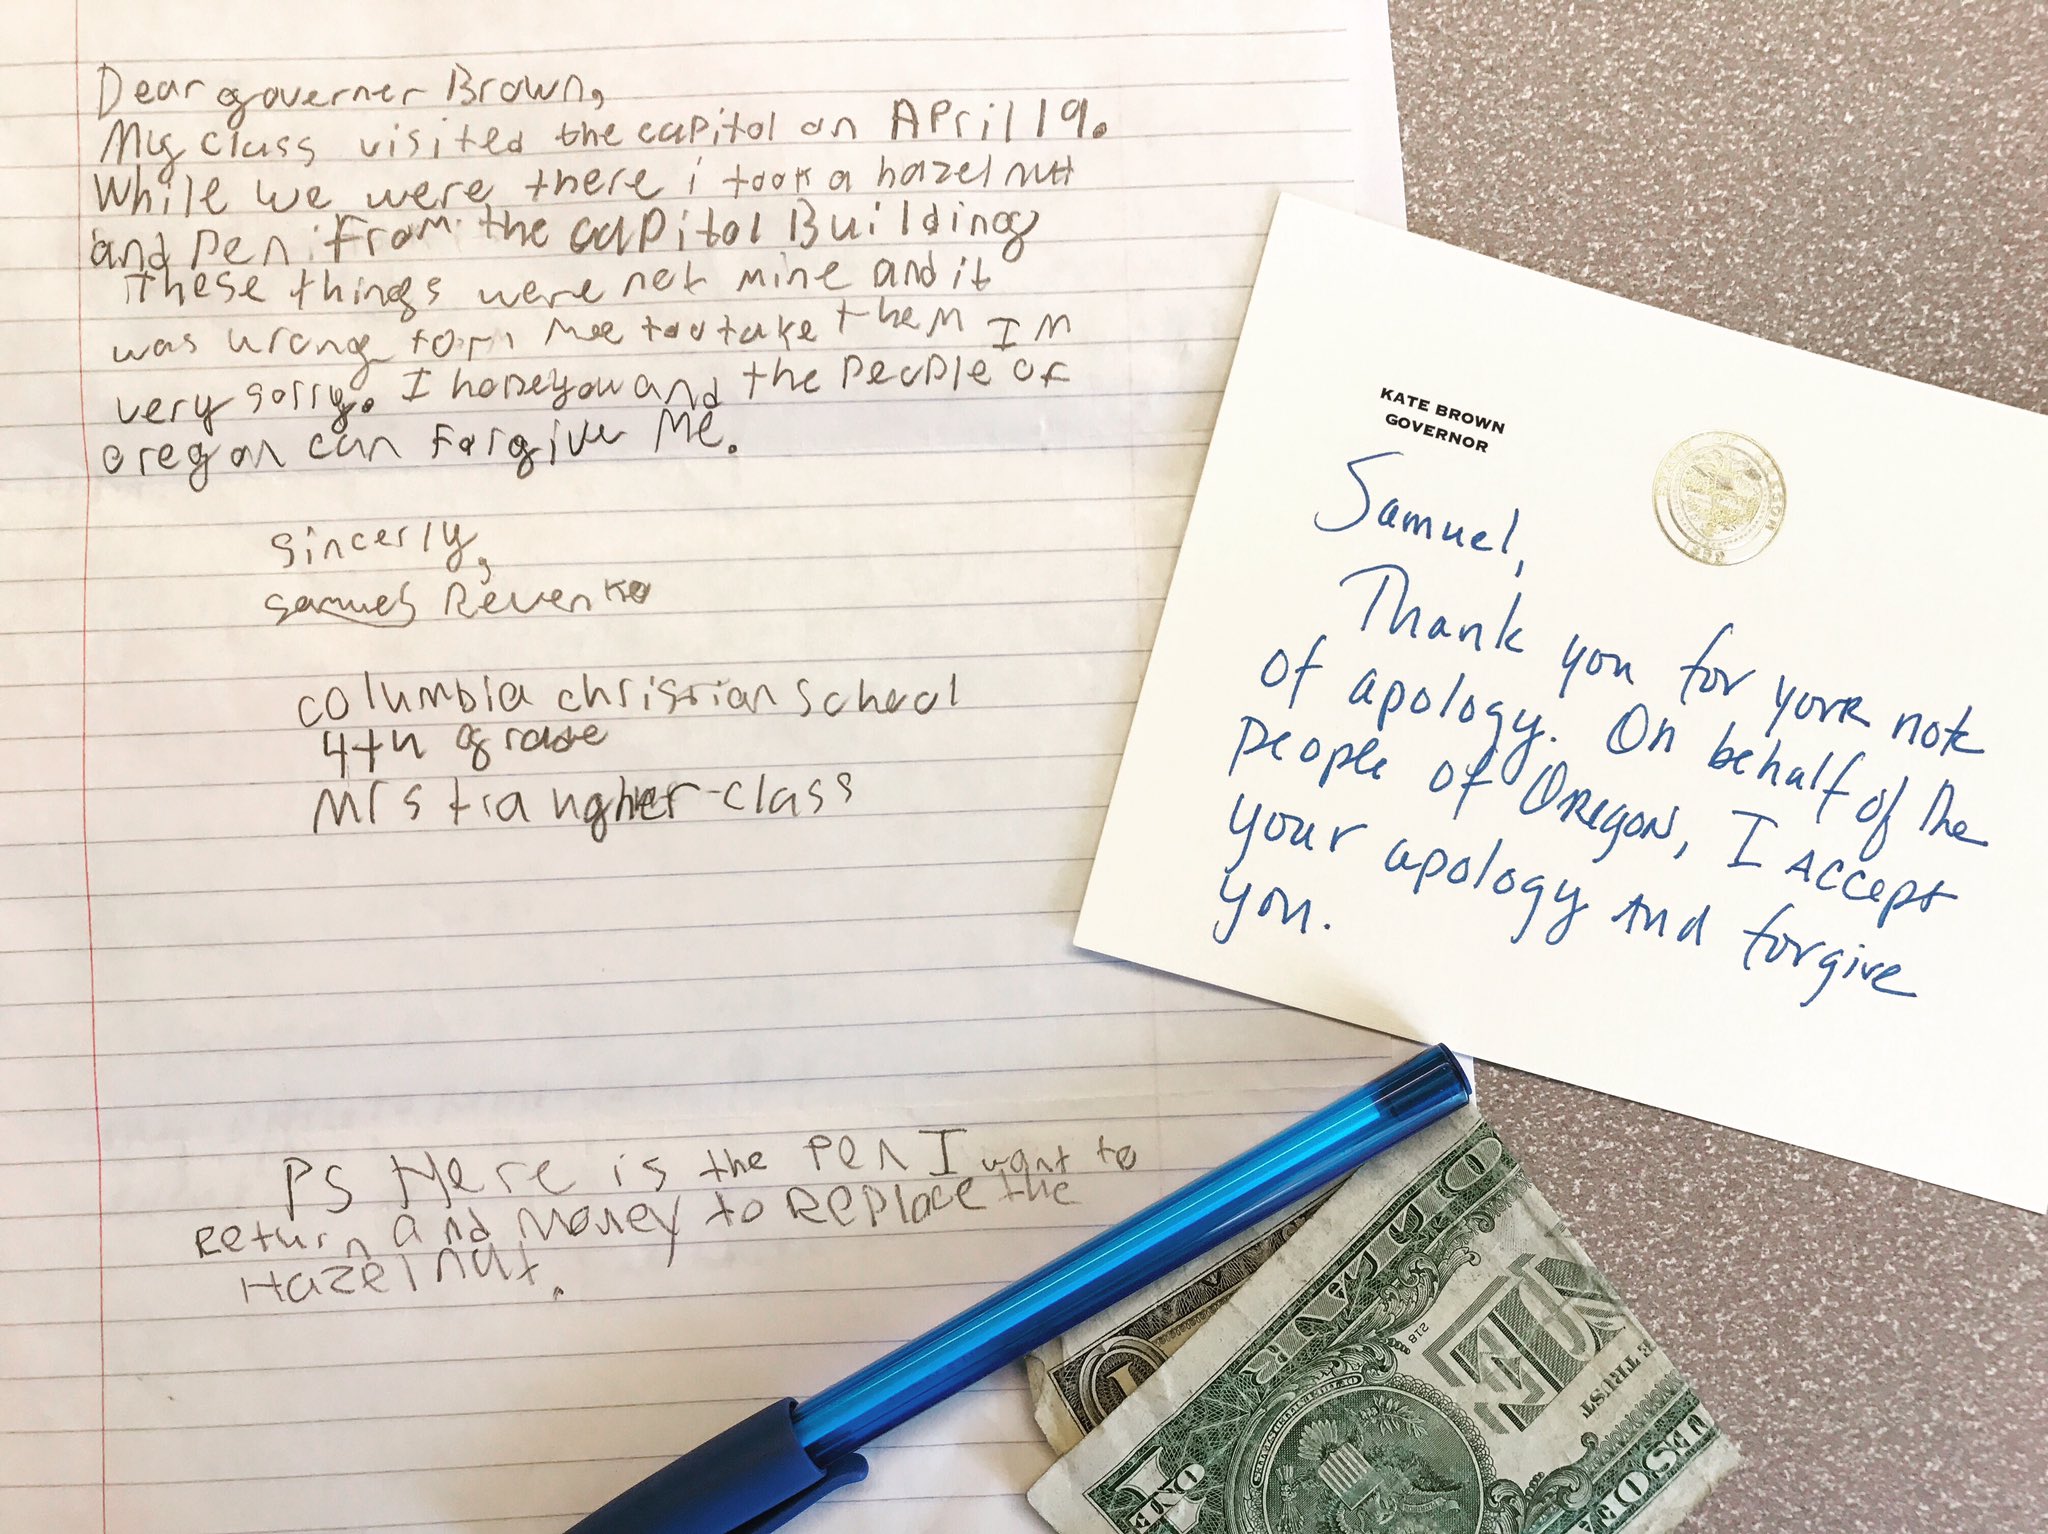 Dear governer Brown,
My class visited the capitol on April 19.
While we were there i took a hazelnut
and pen from the capitol Building
These things were not mine and it
was wrong for me too take them IM
very sorry. I hope you and the people of
oregon can forgive Me.
sincerly,
Samuel Revenko
columbia christian school
4th grade
Mrs class
PS Here is the pen I want to
Return and money to Replace the
Hazelnut.
KATE BROWN
GOVERNOR
Samuel,
Thank you for your note
of apology. On behalf of the
people of Oregon, I accept
your apology and forgive
you.
1859
ONE
TRUST